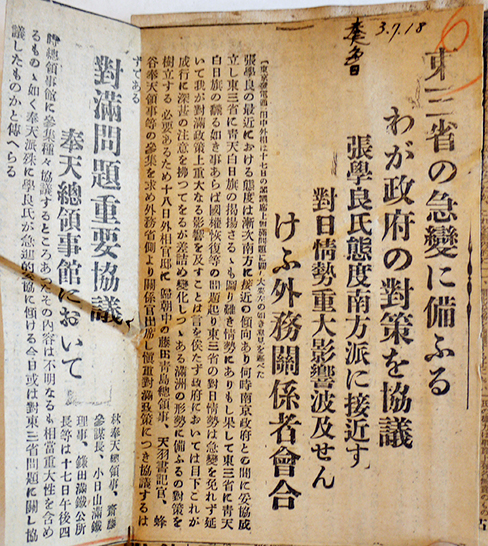 3.7.18
6
東三省の急變に備ふる
わが政府の對策を協議
張學良氏態度南方派に接近す
對日情勢重大影響波及せん
けふ外務關係者會合
張學良の最近における態度は漸次南方に接近の傾向あり何時南京政府との間に妥協成
立し東三省に青天白日旗の揭揚さるゝも圖り難き情勢にありもし果して東三省に青天
白日旗の飜る如き事あらば國權恢復等の問題起り東三省の對日情勢は急變を免れず延
いて我が對滿政策上重大なる影響を及すことは言を俟たず政府においては目下これが
成行に深甚の注意を拂つてをるが差詰め變化しつゝある滿洲の形勢に備ふるの對策を
樹立する必要あるため十八日外相官邸に歸朝中の藤田靑島總領事、天羽書記官、蜂
谷奉天領事等の參集を求め外務省側より關係官出席し愼重對滿政策につき協議するは
ずである
對滿問題重要協議
奉天總領事館において
林奉天總領事、齋藤
參謀長、小日山滿鐵
理事、鎌田滿鐵公所
長等は十七日午後四
時總領事館に參集種々協議するところあつたその內容は不明なるも相當重大性を含め
るものゝ如く奉天派殊に學良氏が急進的妥協に傾ける今日或は對東三省問題に關し協
議したものかと傳へらる